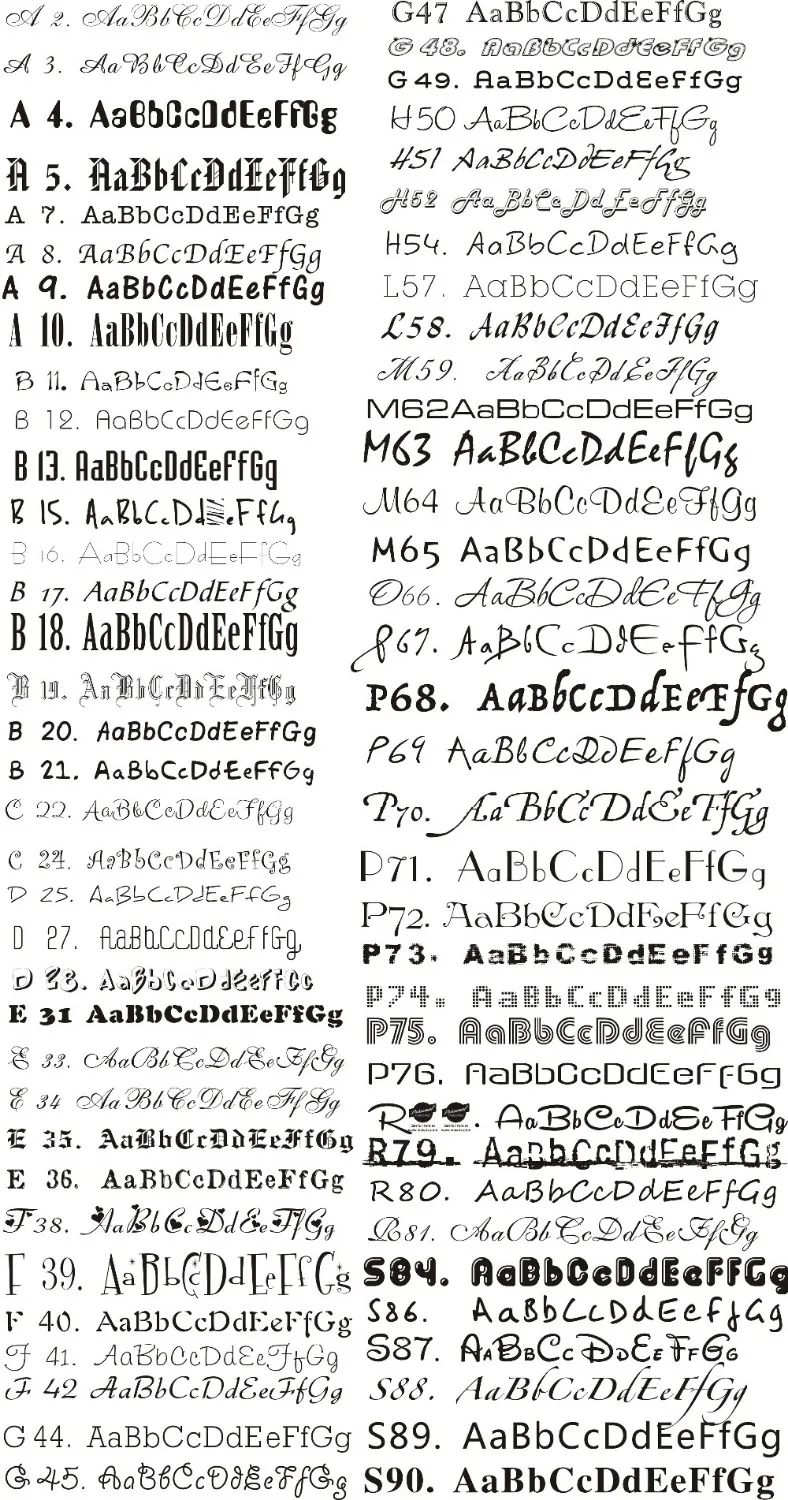 A 2. AaBbCcDdEeFfGg
A 3. AaBbCcDdEeFfGg
A 4. AaBbCcDdEeFfGg
A 5. AaBbCcDdEeFfGg
A 7. AaBbCcDdEeFfGg
A 8. AaBbCcDdEeFfGg
A 9. AaBbCcDdEeFfGg
A 10. AaBbCcDdEeFfGg
B 11. AaBbCcDdEeFfGg
B 12. AaBbCcDdEeFfGg
B 13. AaBbCcDdEeFfGg
B 15. AaBbCcDdEeFfGg
B 16. AaBbCcDdEeFfGg
B 17. AaBbCcDdEeFfGg
B 18. AaBbCcDdEeFfGg
B 19. AaBbCcDdEeFfGg
B 20. AaBbCcDdEeFfGg
B 21. AaBbCcDdEeFfGg
C 22. AaBbCcDdEeFfGg
C 24. AaBbCcDdEeFfGg
D 25. AaBbCcDdEeFfGg
D 27. AaBbCcDdEeFfGg
D 28. AaBbCcDdEeFfGg
E 31 AaBbCcDdEeFfGg
E 33. AaBbCcDdEeFfGg
E 34 AaBbCcDdEeFfGg
E 35. AaBbCcDdEeFfGg
E 36. AaBbCcDdEeFfGg
F 38. AaBbCcDdEeFfGg
F 39. AaBbCcDdEeFfGg
F 40. AaBbCcDdEeFfGg
F 41. AaBbCcDdEeFfGg
F 42 AaBbCcDdEeFfGg
G 44. AaBbCcDdEeFfGg
G 45. AaBbCcDdEeFfGg
G47 AaBbCcDdEeFfGg
G 48. AaBbCcDdEeFfGg
G 49. AaBbCcDdEeFfGg
H 50 AaBbCcDdEeFfGg
H51 AaBbCcDdEeFfGg
H52 AaBbCcDdEeFfGg
H54. AaBbCcDdEeFfGg
L57. AaBbCcDdEeFfGg
L58. AaBbCcDdEeFfGg
M59. AaBbCcDdEeFfGg
M62AaBbCcDdEeFfGg
M63 AaBbCcDdEeFfGg
M64 AaBbCcDdEeFfGg
M65 AaBbCcDdEeFfGg
O66. AaBbCcDdEeFfGg
P67. AaBbCcDdEeFfGg
P68. AaBbCcDdEeFfGg
P69 AaBbCcDdEeFfGg
P70. AaBbCcDdEeFfGg
P71. AaBbCcDdEeFfGg
P72. AaBbCcDdEeFfGg
P73. AaBbCcDdEeFfGg
P74. AaBbCcDdEeFfGg
P75. AaBbCcDdEeFfGg
P76. AaBbCcDdEeFfGg
R . AaBbCcDdEeFfGg
R79. AaBbCcDdEeFfGg
R80. AaBbCcDdEeFfGg
R81. AaBbCcDdEeFfGg
S84. AaBbCcDdEeFfGg
S86. AaBbCcDdEeFfGg
S87. AaBbCcDdEeFfGg
S88. AaBbCcDdEeFfGg
S89. AaBbCcDdEeFfGg
S90. AaBbCcDdEeFfGg